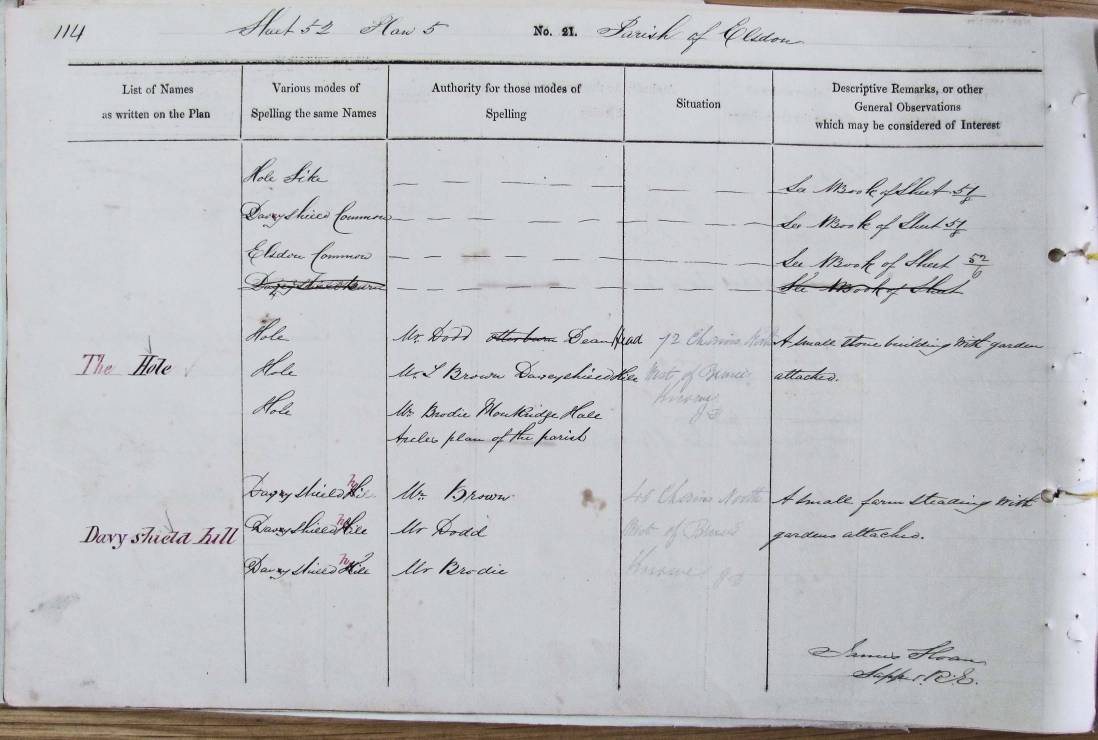 114 Sheet 52 Plan 5 No. 21. Parish of Elsdon
List of Names
as written on the Plan
Various modes of
Spelling the same Names
Authority for those modes of
Spelling
Situation
Descriptive Remarks, or other
General Observations
which may be considered of Interest
Hole Sike — — — — — — — See NBook of Sheet
Davyshield Common — — — — — — — See NBook of Sheet
Elsdon Common — — — — — — — See NBook of Sheet 52/6
Davyshield Burn — — — — — — — See NBook of Sheet
Hole Mr. Dodd Otterburn Dean Head 72 Chains North A small stone building with garden
The Hole Hole Mr. T Brown Davyshield Hill West of attached.
Hole Mr. Brodie Monkridge Hall Knowe
plan of the parish
Davyshield hill Mr. Brown Chains North A small farm steading with
Davyshield hill Davyshield hill Mr Dodd West of gardens attached.
Davyshield hill Mr Brodie Knowe
James Sloan
Sapper. R.E.